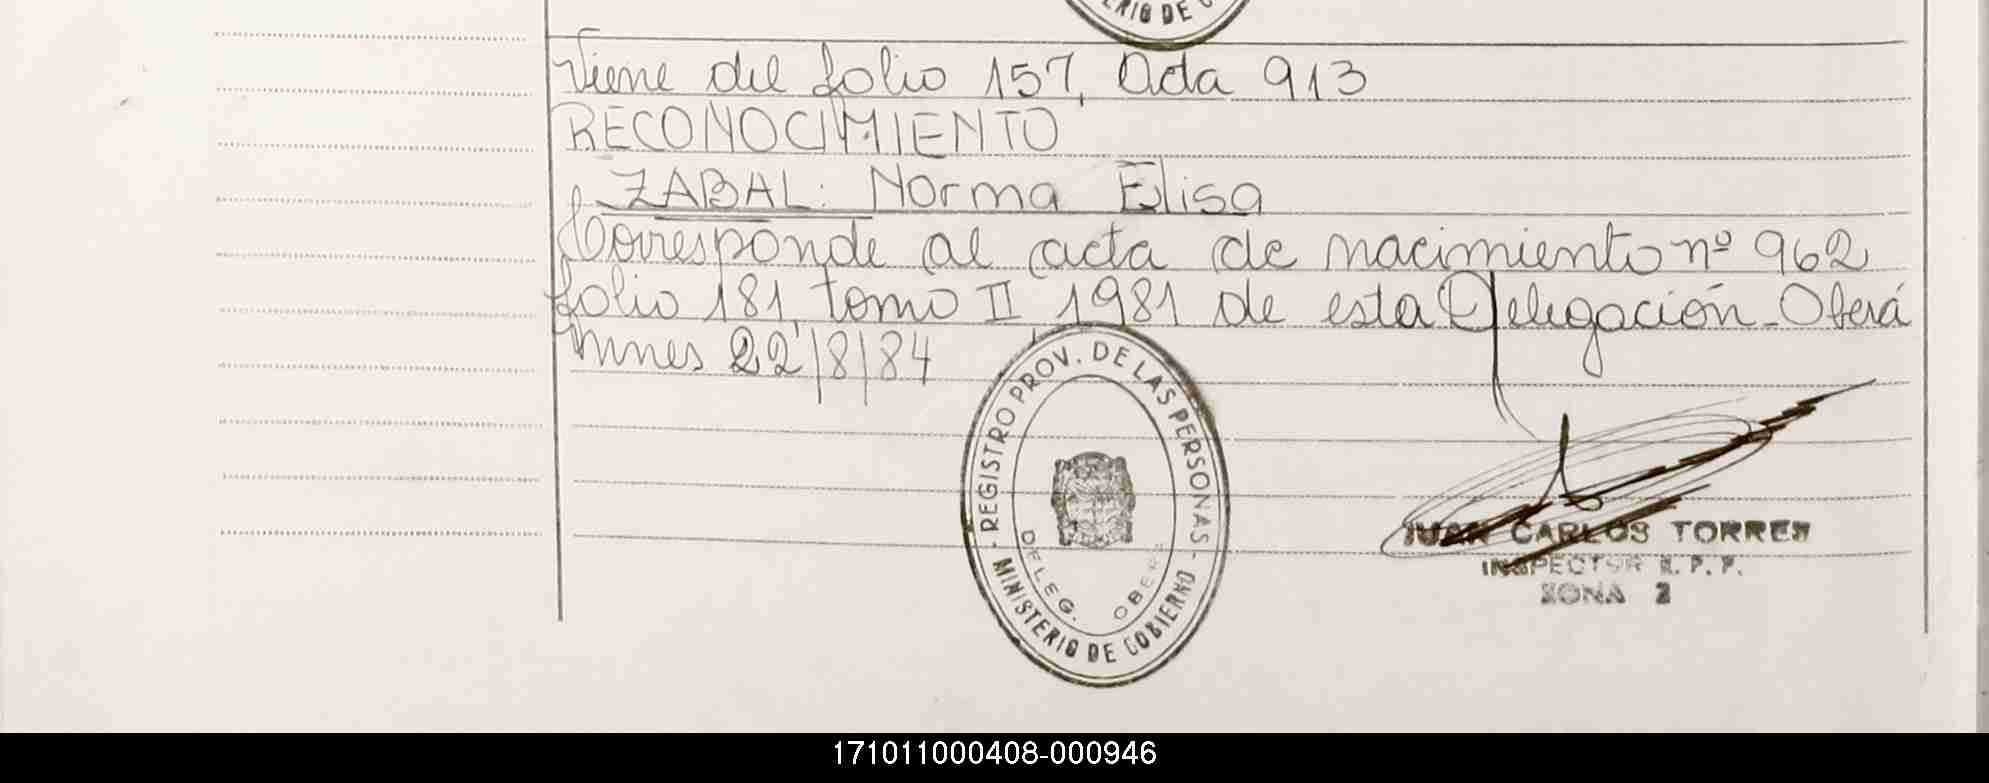 ERIO DE C
Viene del folio 157, Acta 913
RECONOCIMIENTO
ZABAL: Norma Elisa
Corresponde al acta de nacimiento nº 962
folio 181, tomo II 1981 de esta Delegación - Oberá
Mnes 22/8/84
- REGISTRO PROV. DE LAS PERSONAS -
MINISTERIO DE GOBIERNO
DELEG. OBERÁ
JUAN CARLOS TORRES
INSPECTOR R. P. P.
ZONA 2
171011000408-000946